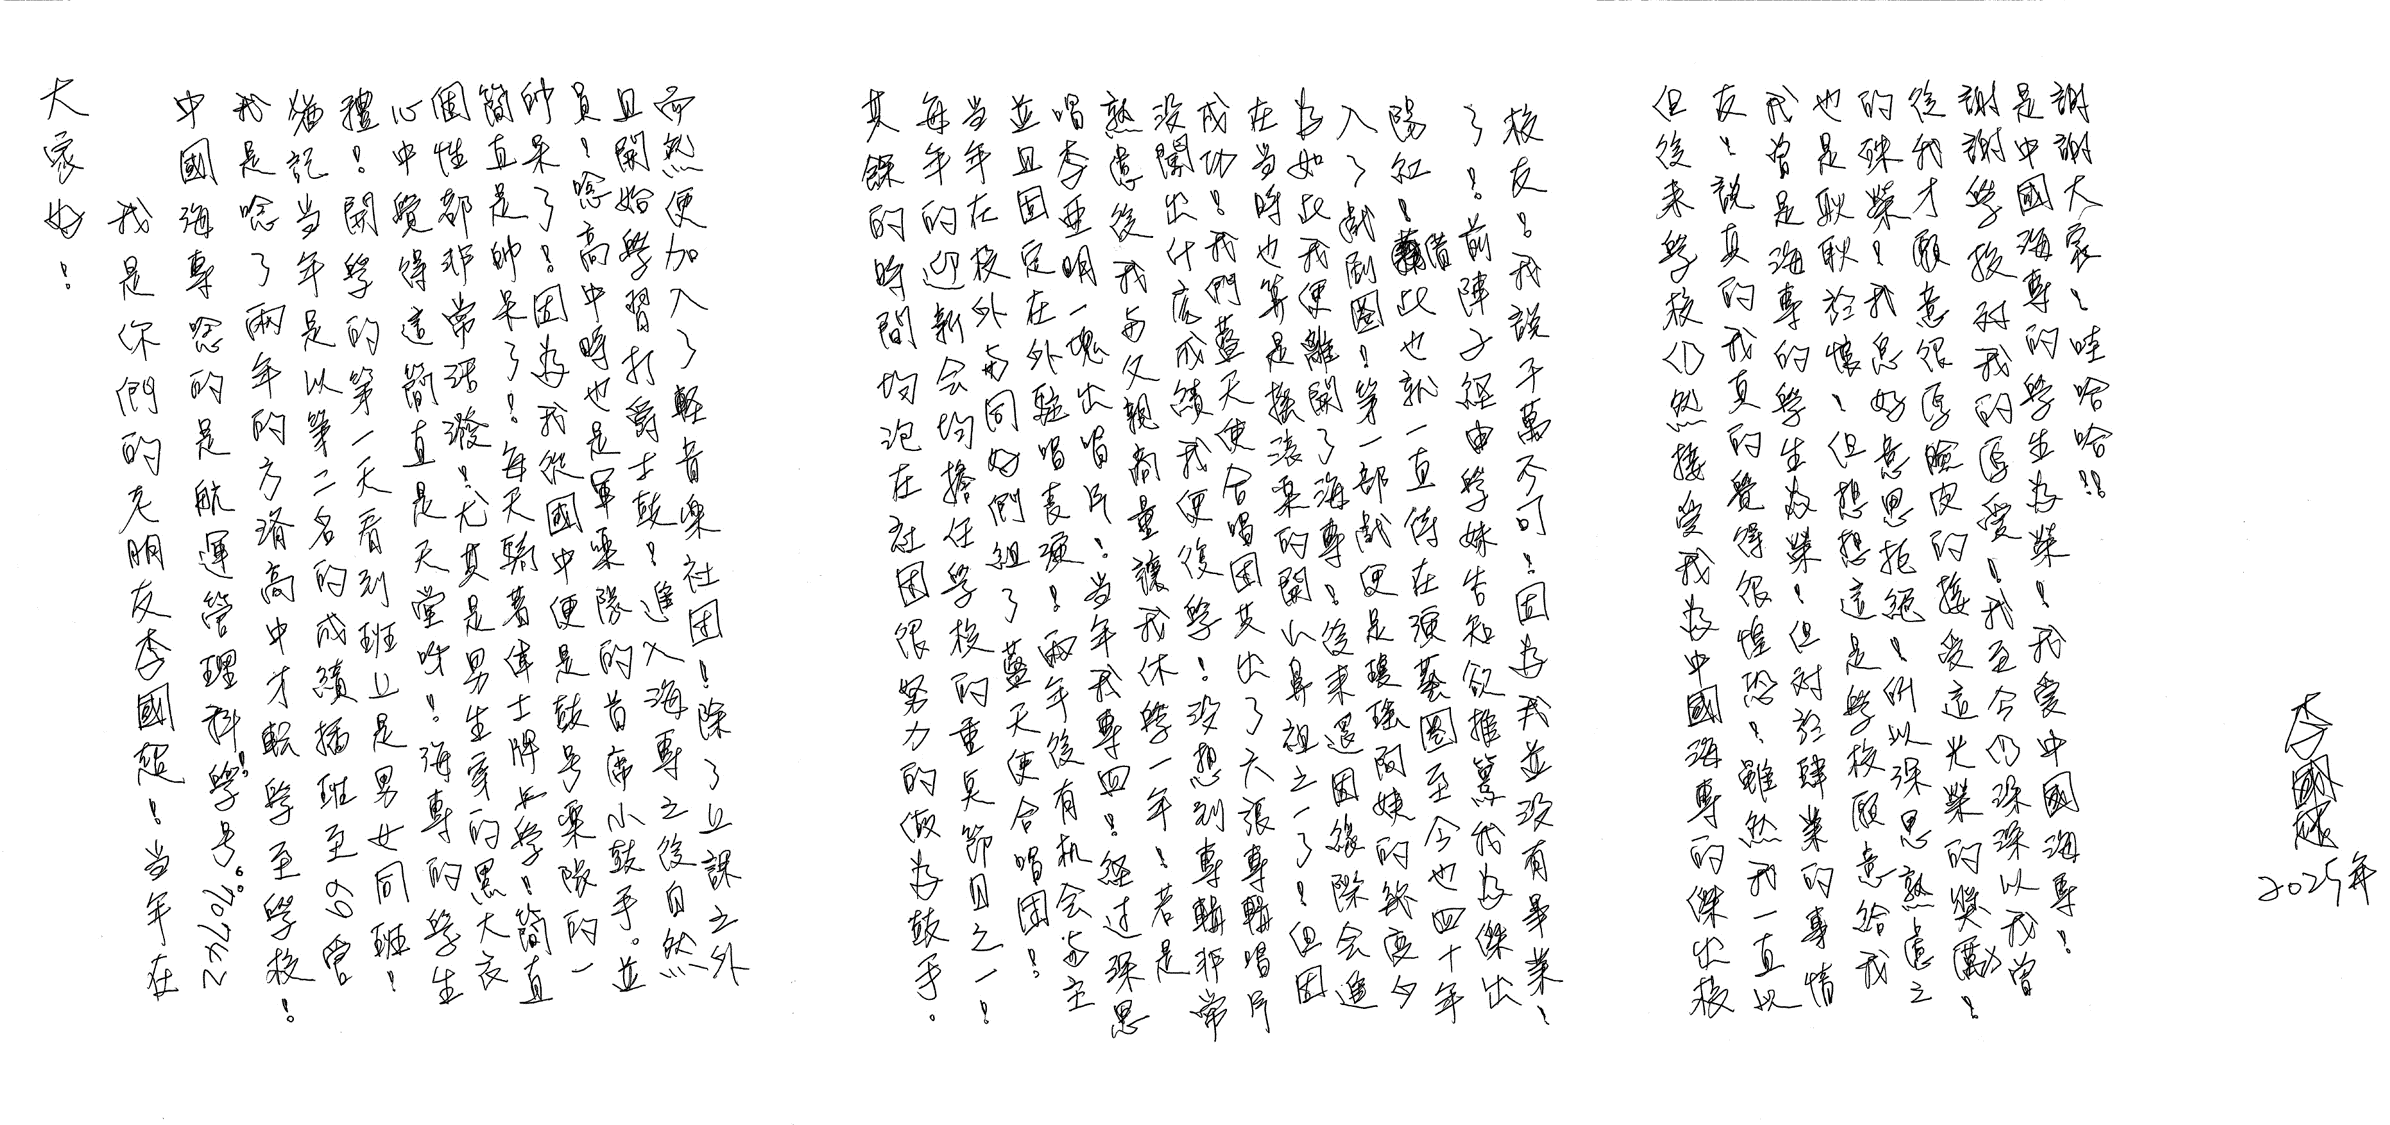 大家好！
我是你們的老朋友李國超！当年在
中國海專唸的是航運管理科！學号。707472
我是唸了兩年的方濟高中才転學至學校！
猶記当年是以第二名的成績插班至69管
禮！開學的第一天看到班上是男女同班！
心中覺得這簡直是天堂呀！海專的學生
個性都非常活潑！尤其是男生穿的黑大衣
簡直是帥呆了！每天騎著偉士牌上學！簡直
帥呆了！因為我從國中便是鼓号樂隊的一
員！唸高中時也是軍樂隊的首席小鼓手。並
且開始學習打爵士鼓！進入海專之後自然
而然便加入了輕音樂社团！除了上課之外
其餘的時間均泡在社团很努力的做為鼓手。
每年的迎新会均擔任學校的重头節目之一！
当年在校外与同好們組了藍天使合唱团！
並且固定在外駐唱表演！兩年後有机会与主
唱李亜明一塊出唱片！当年我專四！経过深思
熟慮後我与父親商量讓我休學一年！若是
没闖出什広成績我便復學！没想到專輯非常
成功！我們藍天使合唱团共出了六張專輯唱片
在当時也算是搖滾樂的開山鼻祖之一了！但因
為如此我便離開了海專！後来還因緣際会進
入了戲劇圈！第一部戲便是瓊瑤阿姨的幾度夕
陽紅！借此也就一直待在演藝圈至今也四十年
了！前陣子経由學妹告知欲推薦我為傑出
校友！我說千萬不可！因為我並没有畢業！
但後来學校仍然接受我為中國海專的傑出校
友！說真的我真的覺得很惶恐！雖然我一直以
我曾是海專的學生為榮！但対於肄業的事情
也是耿耿於懷！但想想這是學校願意給我
的殊榮！我怎好意思拒絕！所以深思熟慮之
後我才願意很厚臉皮的接受這光榮的獎勵！
謝謝學校対我的厚愛！我至今仍深深以我曾
是中國海專的學生為榮！我愛中國海專！
謝謝大家！哇哈哈!!
李國超
2025年